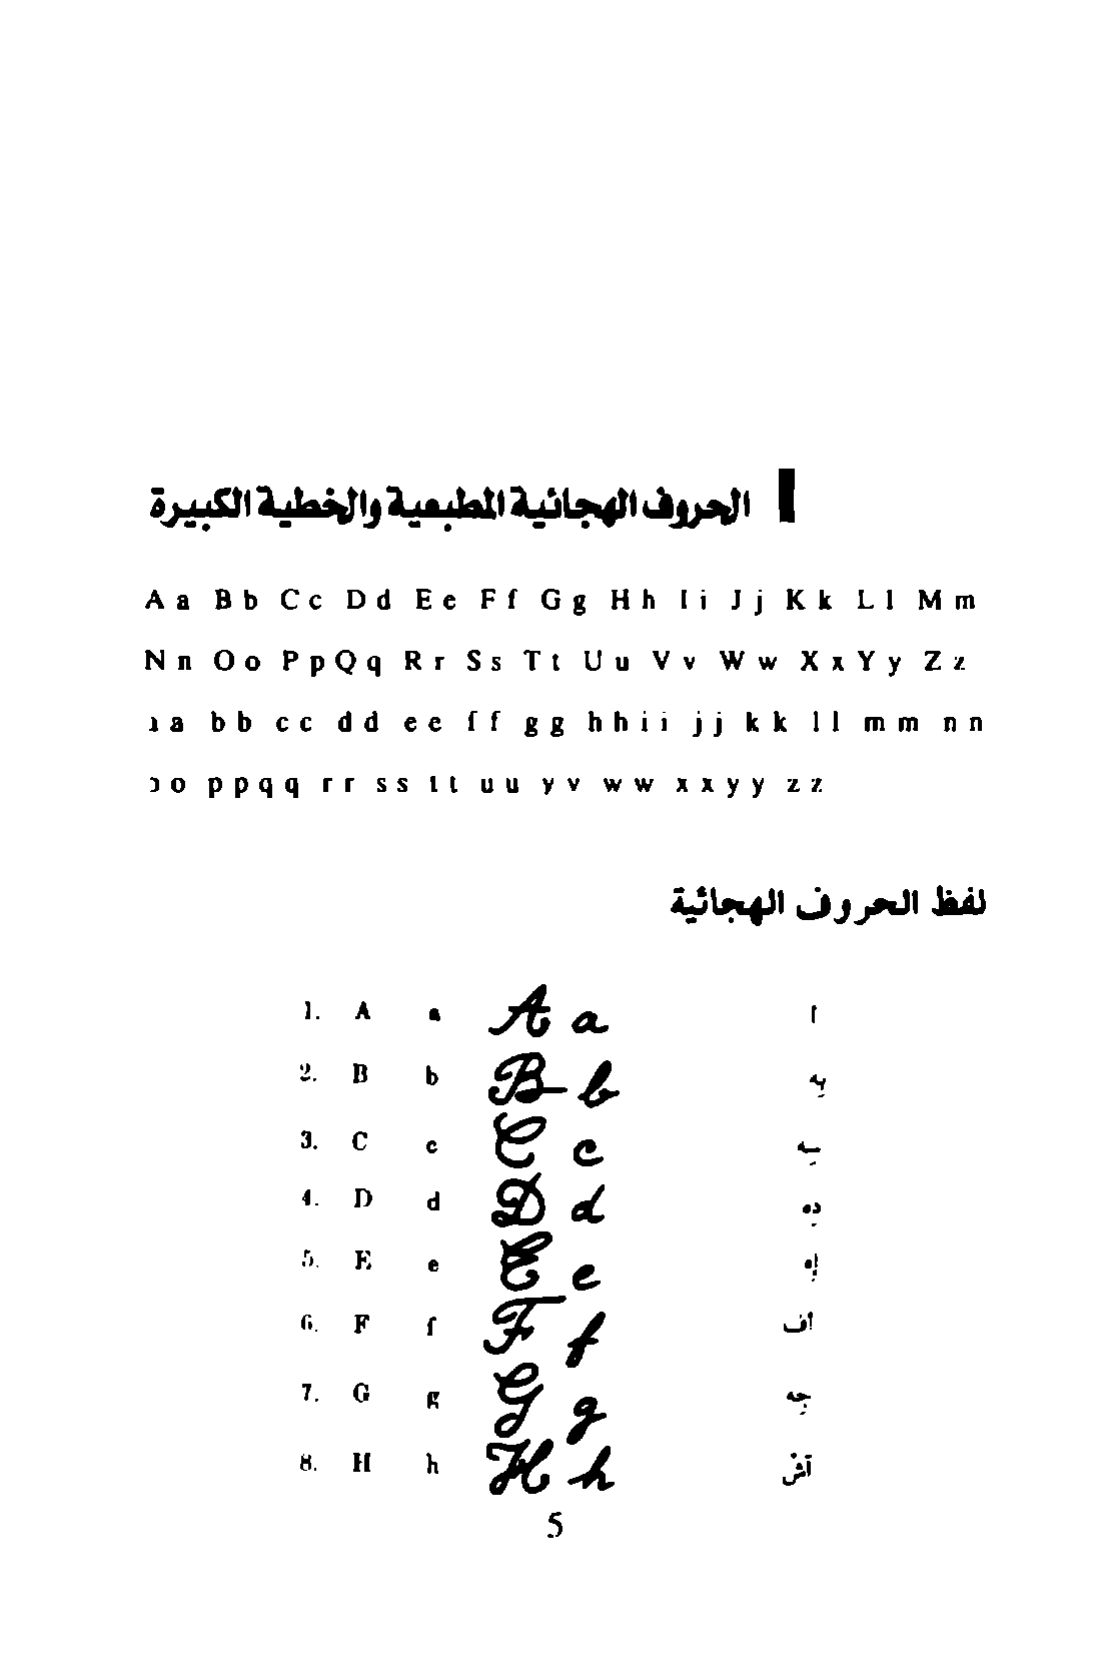 الحروف الهجائية المطبعية والخطية الكبيرة
A a B b C c D d E e F f G g H h I i J j K k L l M m
N n O o P p Q q R r S s T t U u V v W w X x Y y Z z
a a b b c c d d e e f f g g h h i i j j k k l l m m n n
o o p p q q r r s s t t u u y v w w x x y y z z
لفظ الحروف الهجائية
1. A a A a ا
2. B b B b بِه
3. C c C c سِه
4. D d D d دِه
5. E e E e إه
6. F f F f اف
7. G g G g جِه
8. H h H h آش
5